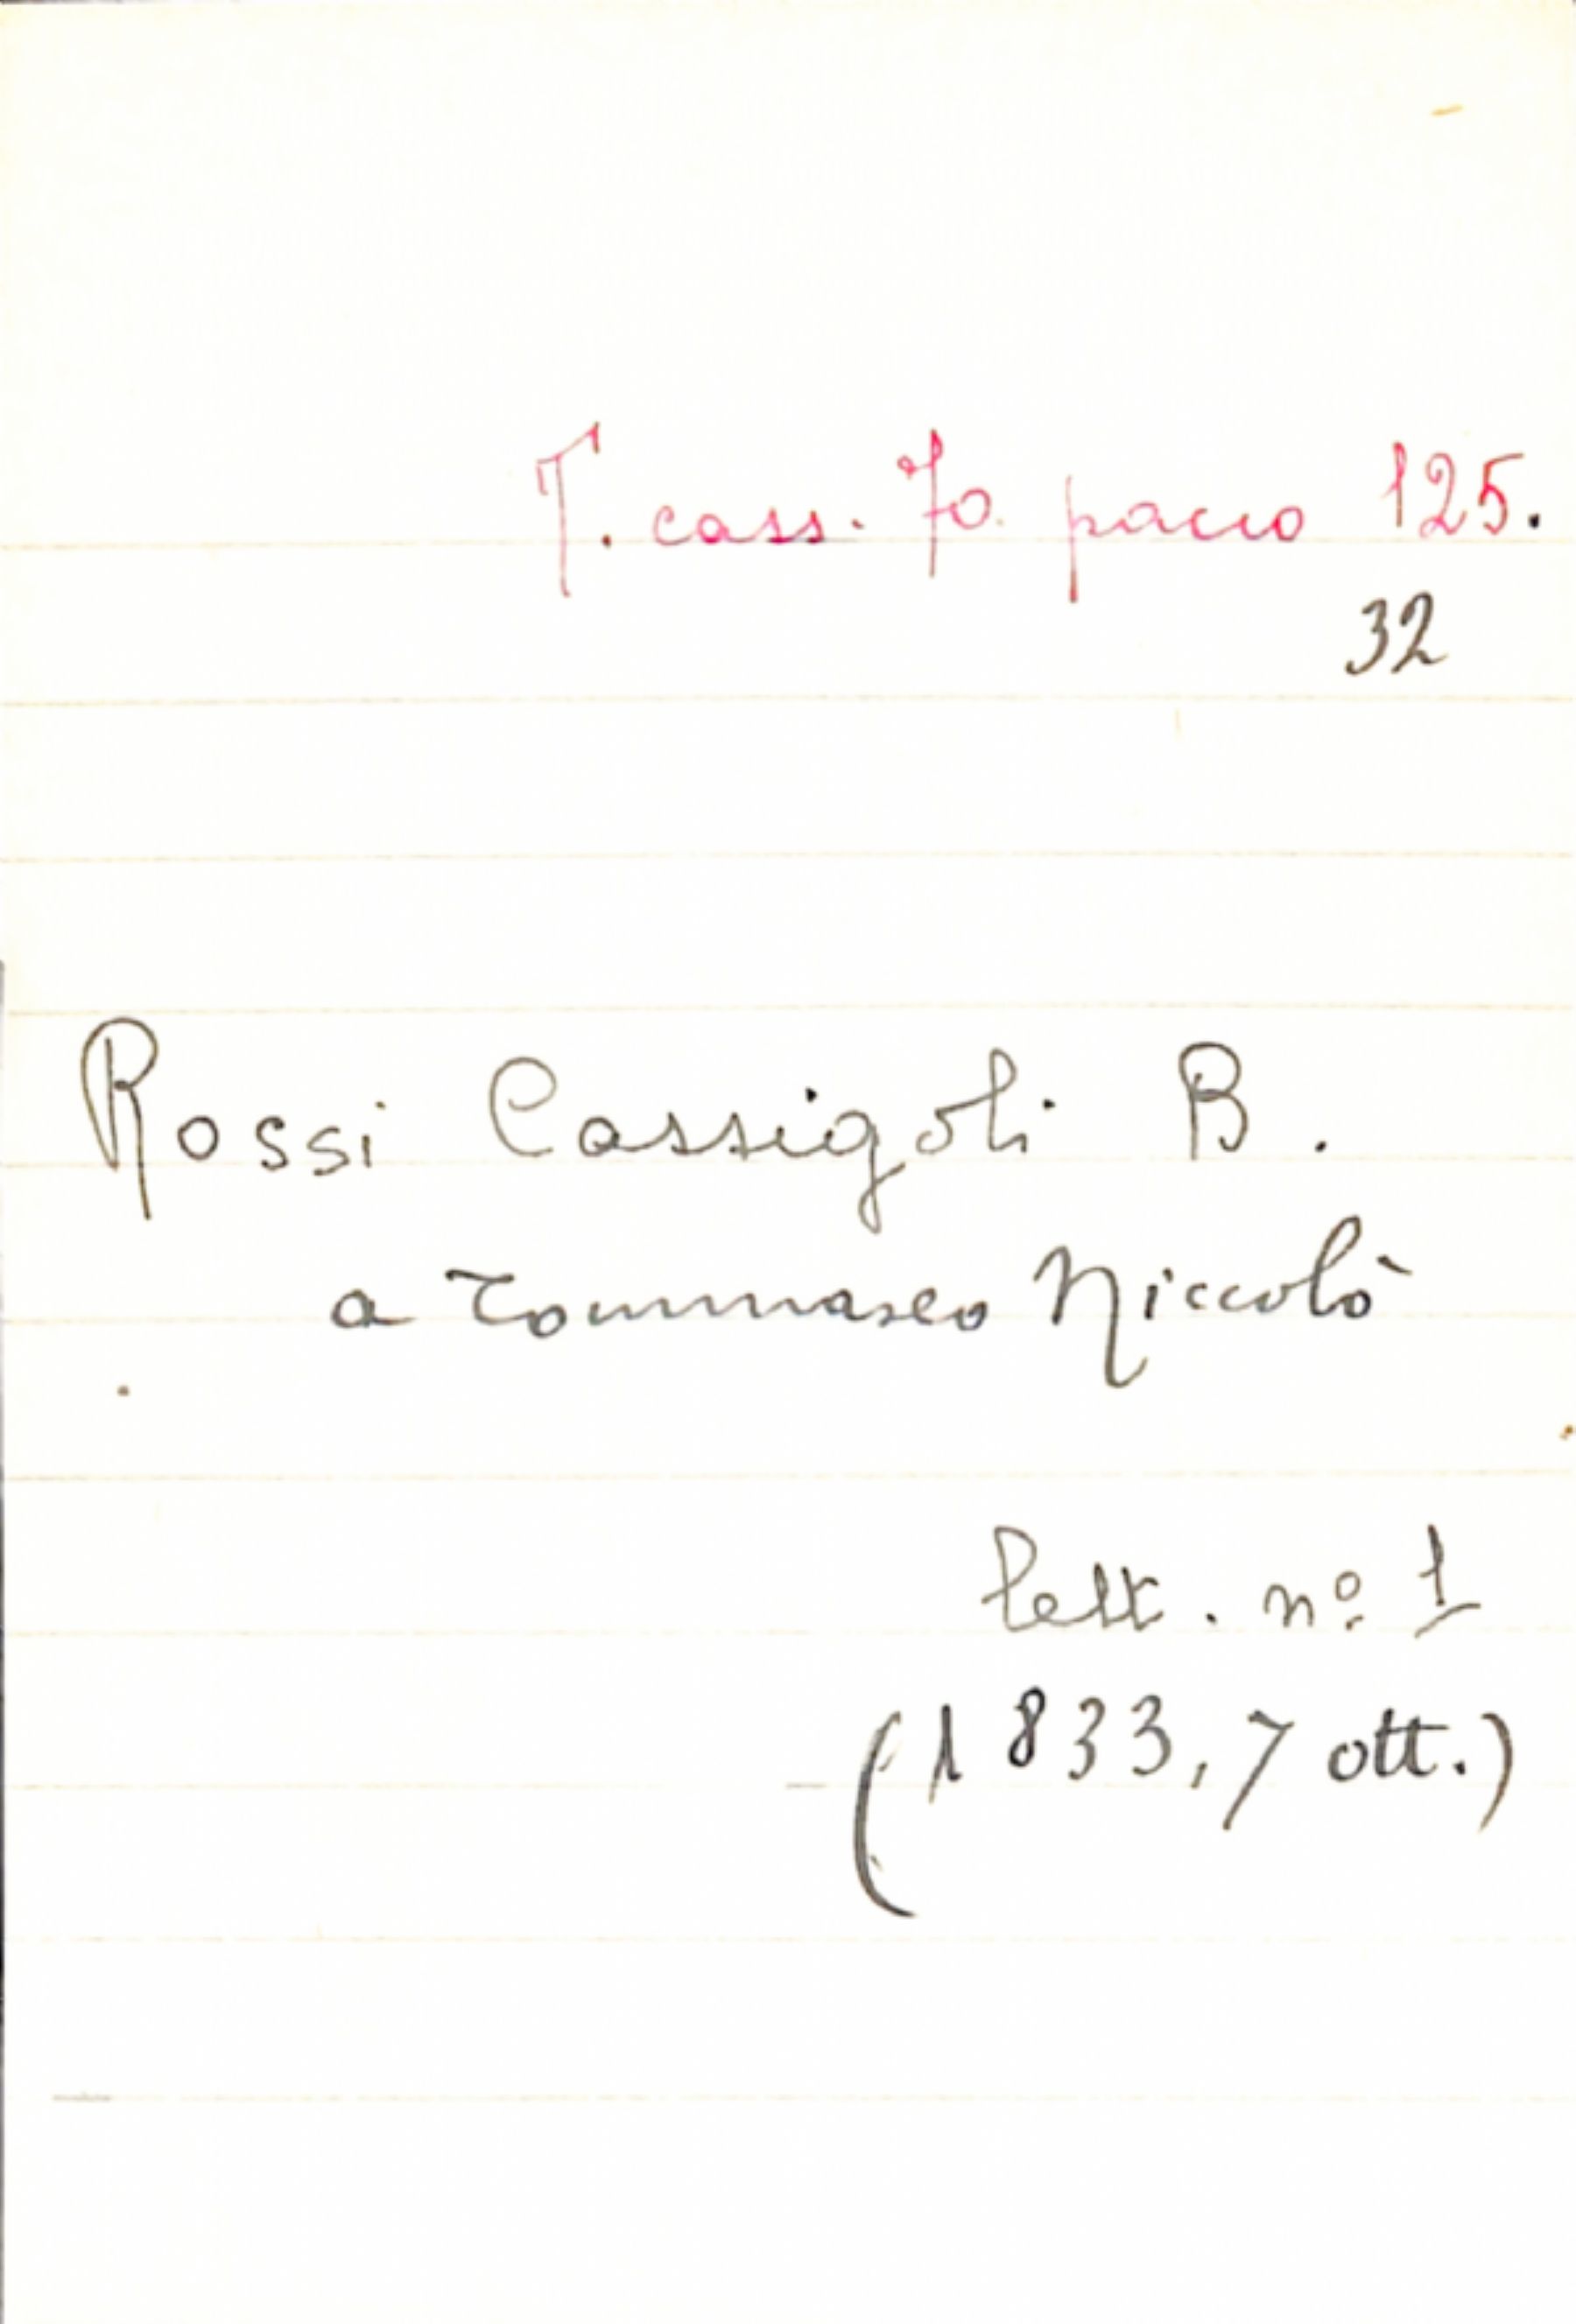 T. cass. 70. pacco 125.
32
Rossi Cassigoli B.
a Tommaseo Niccolò
lett. nº 1
(1833, 7 ott.)